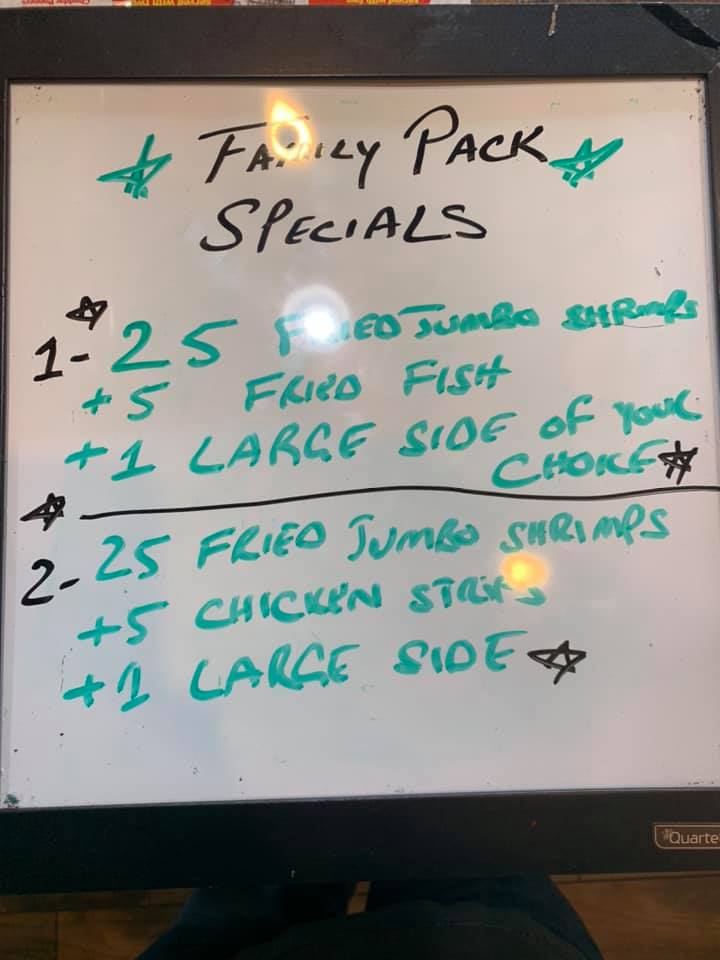 FAMILY PACK
SPECIALS
1- 25 FRIED JUMBO SHRIMPS
+5 FRIED FISH
+1 LARGE SIDE OF YOUR
CHOICE
2- 25 FRIED JUMBO SHRIMPS
+5 CHICKEN STRIPS
+1 LARGE SIDE
Quarte